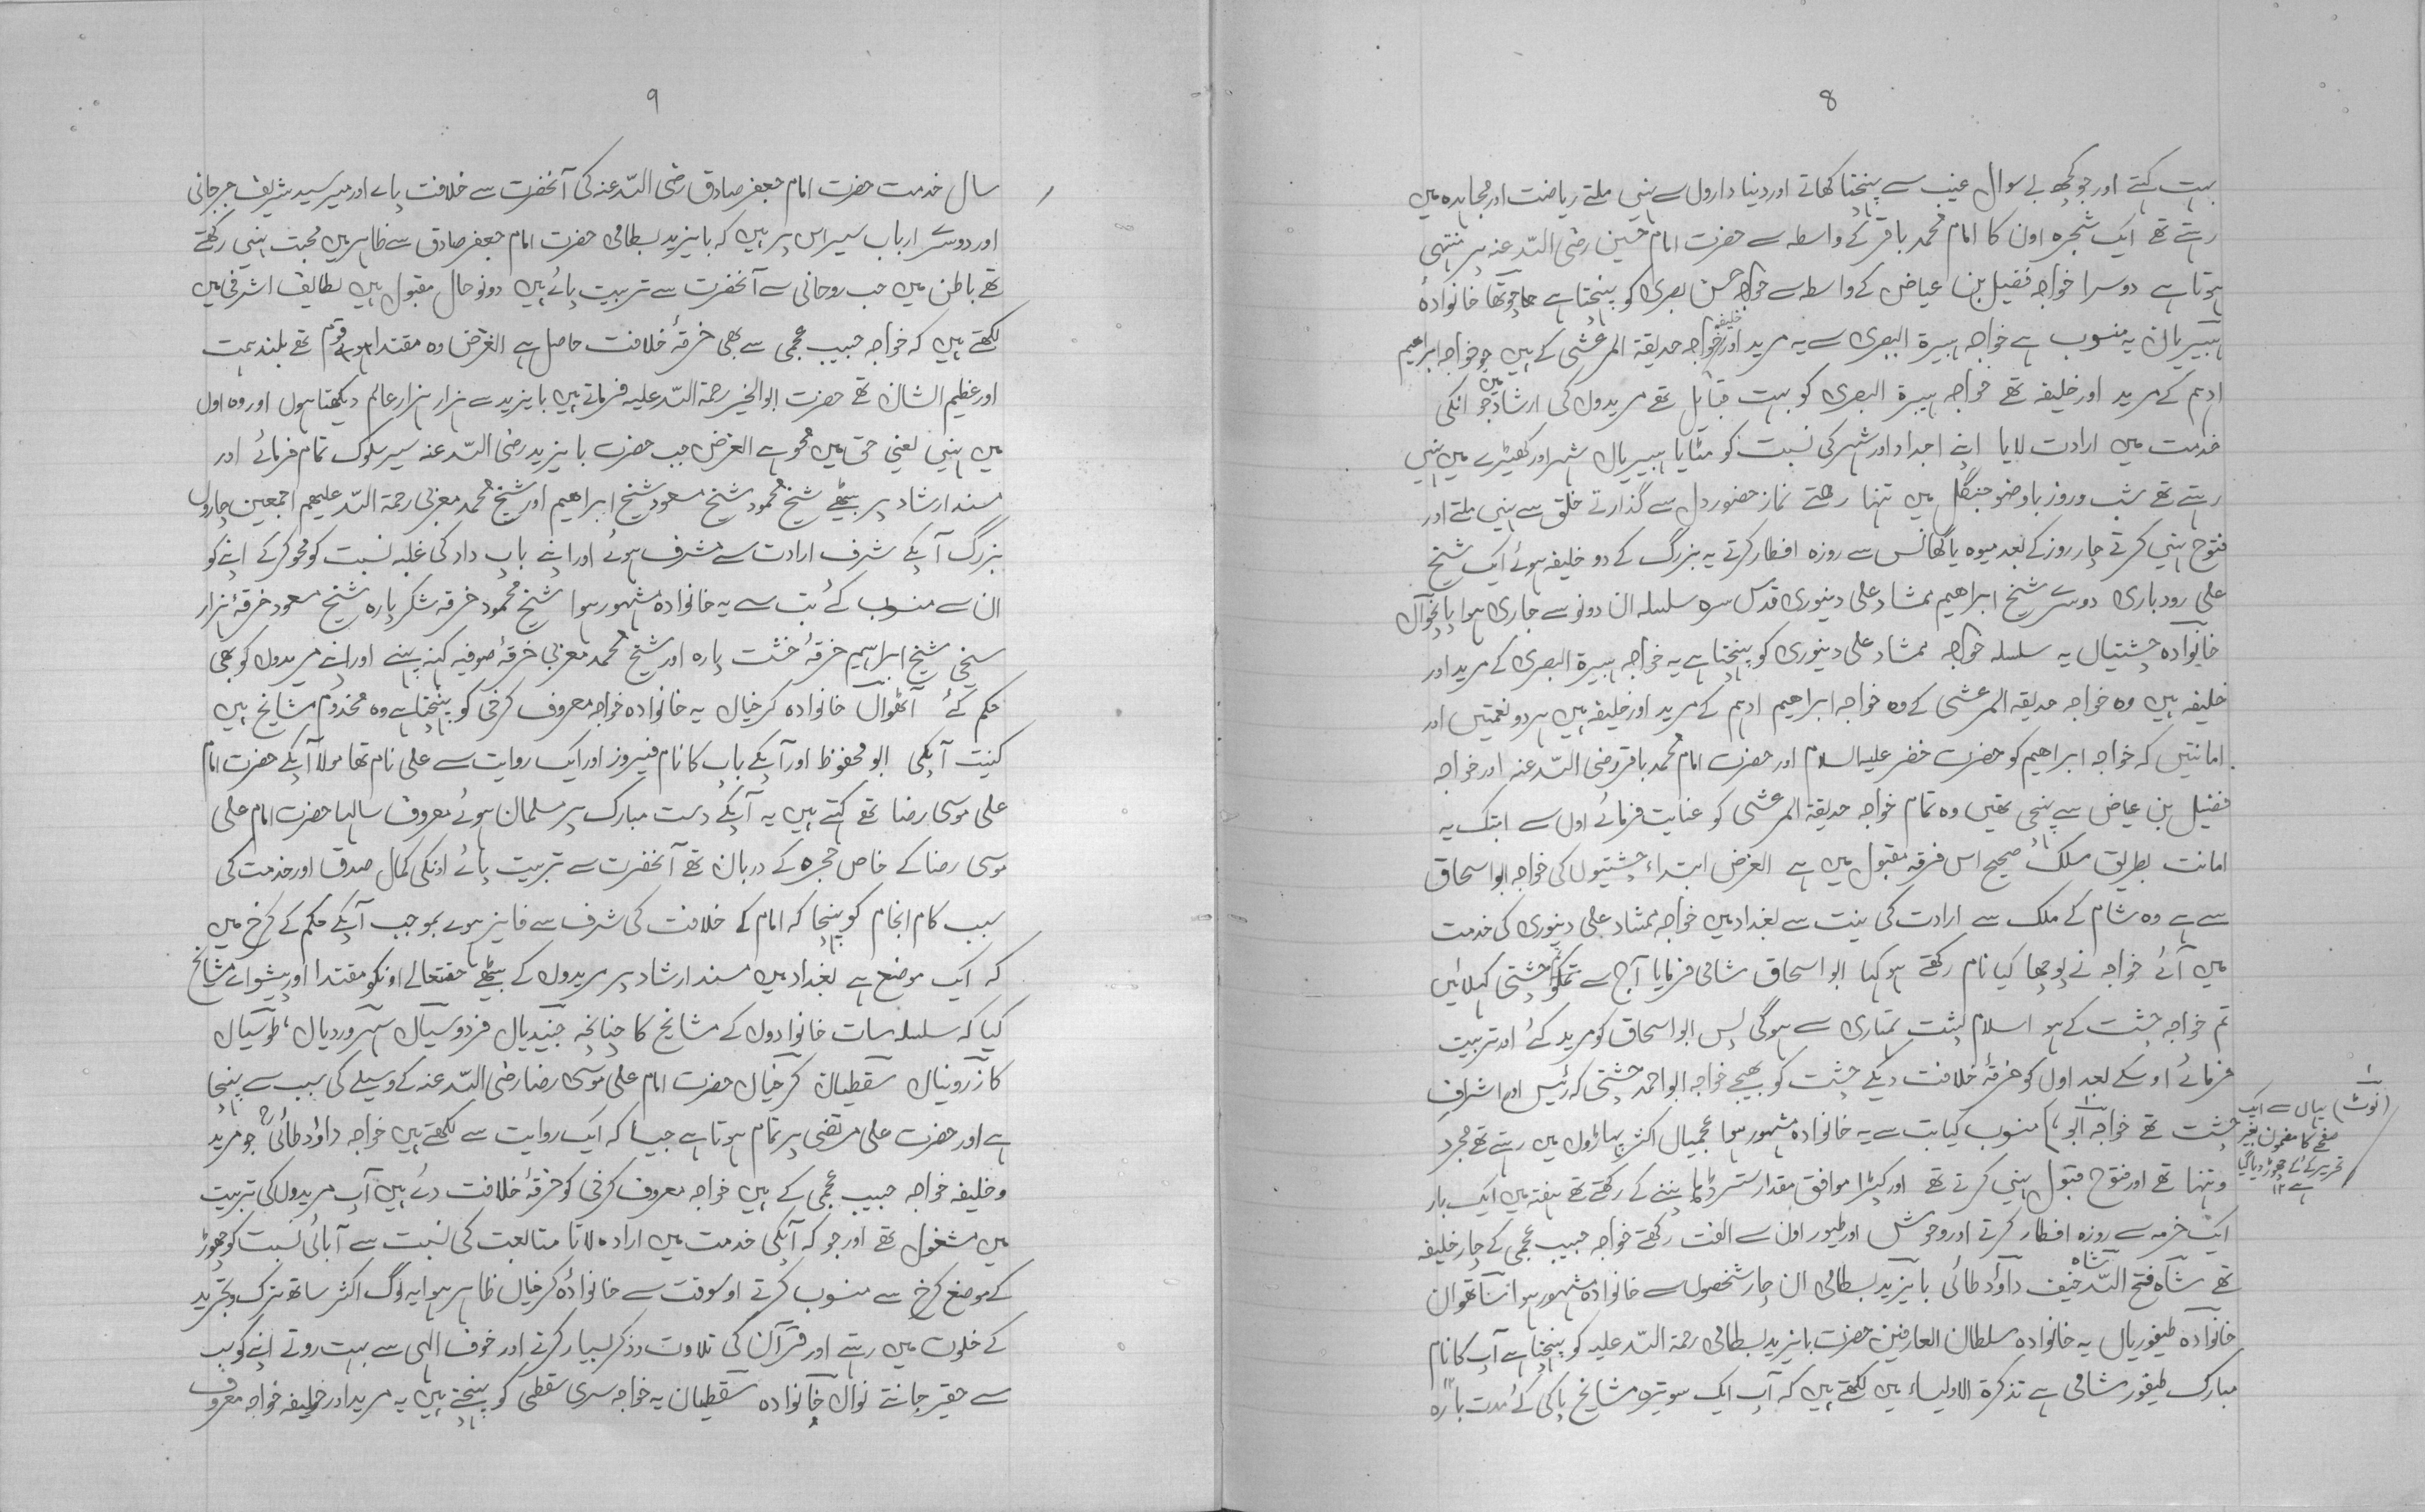 ۸
بہت کہتے اور جو کچھ بے سوال غیب سے پہنچتا کھاتے اور دینا داروں سے نہیں ملتے ریاضت اور مجاہدہ میں
رہتے تھے ایک شجرہ اون کا امام محمد باقر کے واسطہ سے حضرت امام حسین رضی اللہ عنہ پر منتہی
ہوتا ہے دوسرا خواجہ فضیل بن عیاض کے واسطہ سے خواجہ حسن بصری کو پہنچتا ہے چوتھا خانوادۂ
ہبیریاں یہ منسوب ہے خواجہ ہبیرۃ البصری سے یہ مرید اور خلیفہ خواجہ حدیقۃ المرعشی کے ہیں جو خواجہ ابراھیم
ادہم کے مرید اور خلیفہ تھے خواجہ ہبیرۃ البصری کو بہت قبائل تھے مریدوں کی ارشاد میں جو انکی
خدمت میں ارادت لایا اپنے اجداد اور شہر کی نسبت کو مٹایا ہبیریاں شہر اور کھیڑے میں نہیں
رہتے تھے شب و روز باوضو جنگل میں تنہا رھتے نماز حضور دل سے گذارتے خلق سے نہیں ملتے اور
فتوح نہیں کرتے چار روز کے بعد میوہ یا گھانس سے روزہ افطار کرتے یہ بزرگ کے دو خلیفہ ہوئے ایک شیخ
علی رودباری دوسرے شیخ ابراھیم ممشاد علی دینوری قدس سرہ سلسلہ ان دونو سے جاری ہوا پانچواں
خانوادہ چشتیاں یہ سلسلہ خواجہ ممشاد علی دینوری کو پہنچتا ہے یہ خواجہ ہبیرۃ البصری کے مرید اور
خلیفہ ہیں وہ خواجہ حدیقہ المرعشی کے وہ خواجہ ابراھیم ادہم کے مرید اور خلیفہ ہیں ہر دو نعمتیں اور
امانتیں کہ خواجہ ابراھیم کو حضرت خضر علیہ السلام اور حضرت امام محمد باقر رضی اللہ عنہ اور خواجہ
فضیل بن عیاض سے پہنچی تھیں وہ تمام خواجہ حدیقۃ المرعشی کو عنایت فرمائے اول سے ابتک یہ
امانت بطریق مسلک صحیح اس فرقہ مقبول میں ہے الغرض ابتداء چشتیوں کی خواجہ ابو اسحاق
سے ہے وہ شام کے ملک سے ارادت کی نیت سے بغداد میں خواجہ ممشاد علی دینوری کی خدمت
میں آئے خواجہ نے پوچھا کیا نام رکھتے ہو کہا ابو اسحاق شامی فرمایا آج سے تمکو چشتی کہلائیں
تم خواجہ چشت کے ہو اسلام چشت تمہاری سے ہوگی پس ابو اسحاق کو مرید کئے اور تربیت
فرمائے اوسکے بعد اول کو خرقۂ خلافت دیکے چشت کو بھیجے خواجہ ابو احمد چشتی کہ رئیس اور اشراف
چشت تھے خواجہ ابو منسوب کیا بت سے یہ خانوادہ مشہور ہوا عجمیاں اکثر پہاڑوں میں رہتے تھے مجرد
و تنہا تھے اور فتوح قبول نہیں کرتے تھے اور کپڑا موافق مقدار ستر ڈہانپنے کے رکھتے تھے ہفتہ میں ایک بار
ایک خرمہ سے روزہ افطار کرتے اور وحوش اور طیور اون سے الفت رکھتے خواجہ حبیب عجمی کے چار خلیفہ
تھے شاہ فتح اللہ شاہ حنیف داؤد طائی بایزید بسطامی ان چار شخصوں سے خانوادہ مشہور ہوا ساتھواں
خانوادہ طیفوریاں یہ خانوادہ سلطان العارفین حضرت بایزید بسطامی رحمۃ اللہ علیہ کو پہنچتا ہے آپ کا نام
مبارک طیفور شامی ہے تذکرۃ الاولیاء میں لکھتے ہیں کہ آپ ایک سو تیرہ مشایخ پاکی کئے مدت بارہ ۱۲
۱
(نوٹ) یہاں سے ایک
صفحے کا مضمون بغیر
تحریر کے چھوڑ دیا گیا
ہے ۱۲
۹
سال خدمت حضرت امام جعفر صادق رضی اللہ عنہ کی آنحضرت سے خلافت پائے اور میر سید شریف جرجانی
اور دوسرے ارباب سیر اس پر ہیں کہ بایزید بسطامی حضرت امام جعفر صادق سے ظاہر میں صحبت نہیں رکھتے
تھے باطن میں حب روحانی سے آنحضرت سے تربیت پائے ہیں دونو حال مقبول ہیں لطایف اشرفی میں
لکھتے ہیں کہ خواجہ حبیب عجمی سے بھی خرقۂ خلافت حاصل ہے الغرض وہ مقتدا قوم تھے بلند ہمت
اور عظیم الشان تھے حضرت ابو الخیر رحمۃ اللہ علیہ فرماتے ہیں بایزید سے ہزار ہزار عالم دیکھتا ہوں اور وہ اول
میں نہیں یعنی حق میں محو ہے الغرض جب حضرت بایزید رضی اللہ عنہ سیر سلوک تمام فرمائے اور
مسند ارشاد پر بیٹھے شیخ محمود شیخ مسعود شیخ ابراھیم اور شیخ محمد مغربی رحمۃ اللہ علیھم اجمعین چاروں
بزرگ آپکے شرف ارادت سے مشرف ہوئے اور اپنے باپ داد کی غلبہ نسبت کو محو کرکے اپنے کو
ان سے منسوب کئے تب سے یہ خانوادہ مشہور ہوا شیخ محمود خرقہ شکر پارہ شیخ مسعود خرقۂ ہزار
سنجی شیخ ابراہیم خرقۂ خشت پارہ اور شیخ محمد مغربی خرقۂ صوفیہ کہنہ پہنے اور اپنے مریدوں کو بھی
حکم کئے آٹھواں خانوادہ کرخیاں یہ خانوادہ خواجہ معروف کرخی کو پہنچتا ہے وہ مخدوم مشایخ ہیں
کنیت آپکی ابو محفوظ اور آپکے باپ کا نام فیروز اور ایک روایت سے علی نام تھا مولا آپکے حضرت امام
علی موسی رضا تھے کہتے ہیں یہ آپکے دست مبارک پر مسلمان ہوئے معروف سالہا حضرت امام علی
موسی رضا کے خاص حجرہ کے دربان تھے آنحضرت سے تربیت پائے اونکی کمال صدق اور خدمت کی
سبب کام انجام کو پہنچا کہ امام کے خلافت کی شرف سے فایز ہوے بموجب آپکے حکم کے کرخ میں
کہ ایک موضع ہے بغداد میں مسند ارشاد پر مریدوں کے بیٹھے حقتعالے اونکو مقتدا اور پیشوائے مشایخ
کیا کہ سلسلہ سات خانوادوں کے مشایخ کا چنانچہ جنیدیاں فردوسیاں سہروردیاں، طوسیاں
کازرونیاں سقطیاں کرخیاں حضرت امام علی موسی رضا رضی اللہ عنہ کے وسیلے کی سبب سے پہنچا
ہے اور حضرت علی مرتضی پر تمام ہوتا ہے جیسا کہ ایک روایت سے لکھتے ہیں خواجہ داؤد طائی رح جو مرید
و خلیفہ خواجہ حبیب عجمی کے ہیں خواجہ معروف کرخی کو خرقۂ خلافت دئے ہیں آپ مریدوں کی تربیت
میں مشغول تھے اور جو کہ آپکی خدمت میں ارادہ لاتا متابعت کی نسبت سے آبائی نسبت کو چھوڑ
کے موضع کرخ سے منسوب کرتے اوسوقت سے خانوادۂ کرخیاں ظاہر ہوا یہ لوگ اکثر ساتھ ترک و تجرید
کے خلوت میں رہتے اور قرآن کی تلاوت و ذکر بسیار کرتے اور خوف الہی سے بہت روتے اپنے کو سب
سے حقیر جانتے نواں خانوادہ سقطیان یہ خواجہ سری سقطی کو پہنچتے ہیں یہ مرید اور خلیفہ خواجہ معروف